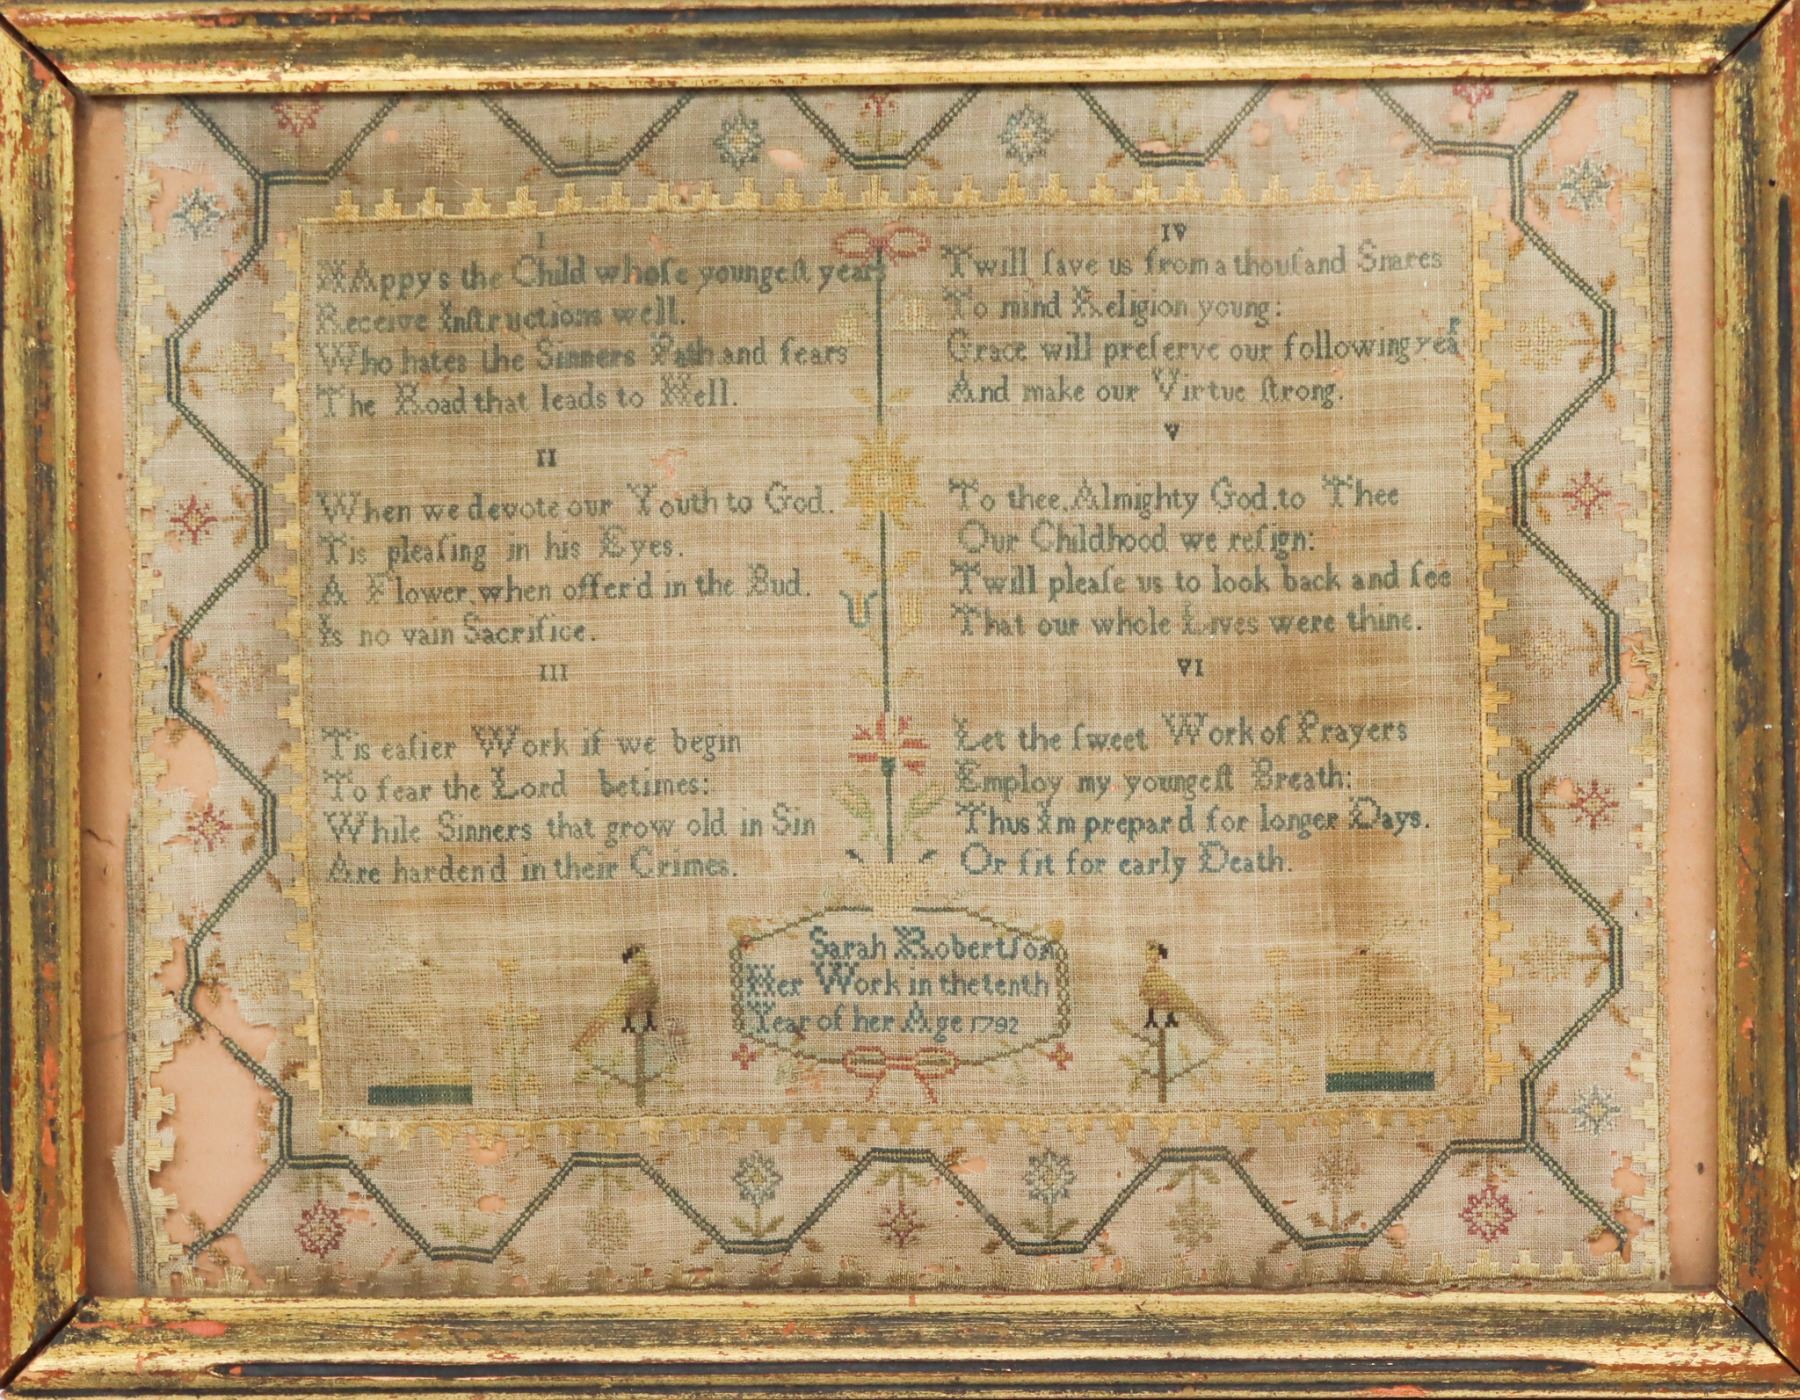 I
HAppys the Child whoſe youngeſt years
Receive Inſtructions well.
Who hates the Sinners Path and fears
The Road that leads to Hell.
II
When we devote our Youth to God.
Tis pleaſing in his Eyes.
A Flower, when offer'd in the Bud.
Is no vain Sacrifice.
III
Tis eaſier Work if we begin
To fear the Lord betimes:
While Sinners that grow old in Sin
Are harden'd in their Crimes.
IV
Twill ſave us from a thouſand Snares
To mind Religion young:
Grace will preſerve our following year
And make our Virtue ſtrong.
V
To thee, Almighty God, to Thee
Our Childhood we reſign:
Twill pleaſe us to look back and ſee
That our whole Lives were thine.
VI
Let the ſweet Work of Prayers
Employ my youngeſt Breath:
Thus Im prepar'd for longer Days.
Or fit for early Death.
Sarah Robertſon
Her Work in the tenth
Year of her Age 1792